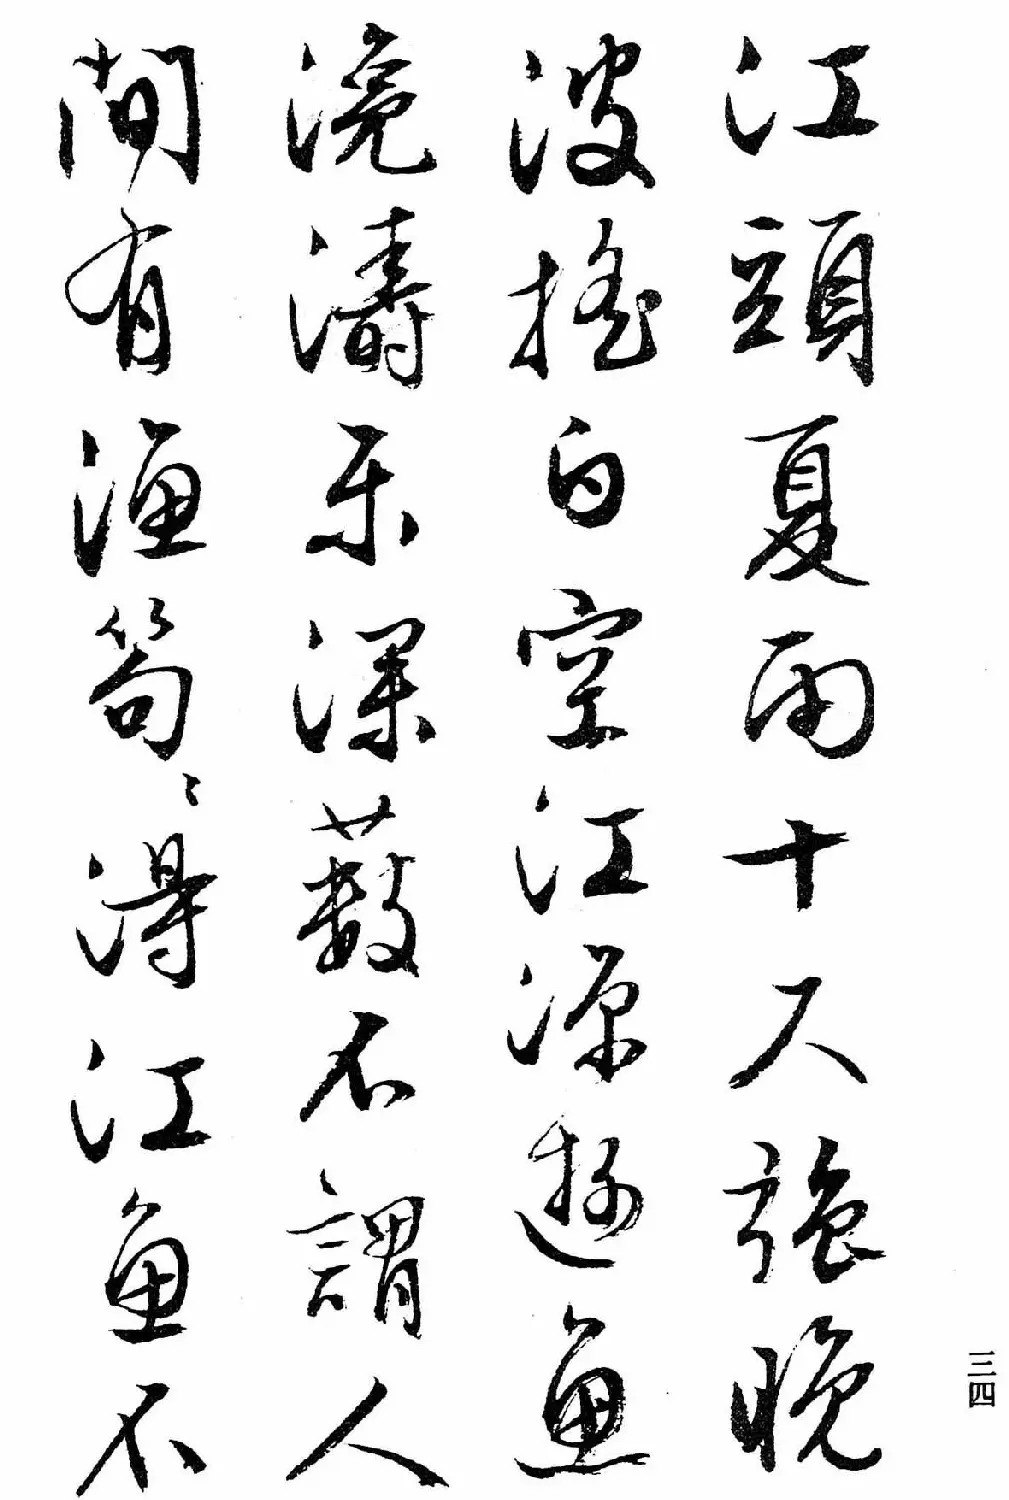 江頭夏雨十尺強晚
波搖白空江深遊魚
浣濤樂深藪不謂人
間有漁笱〻得江魚不
三四